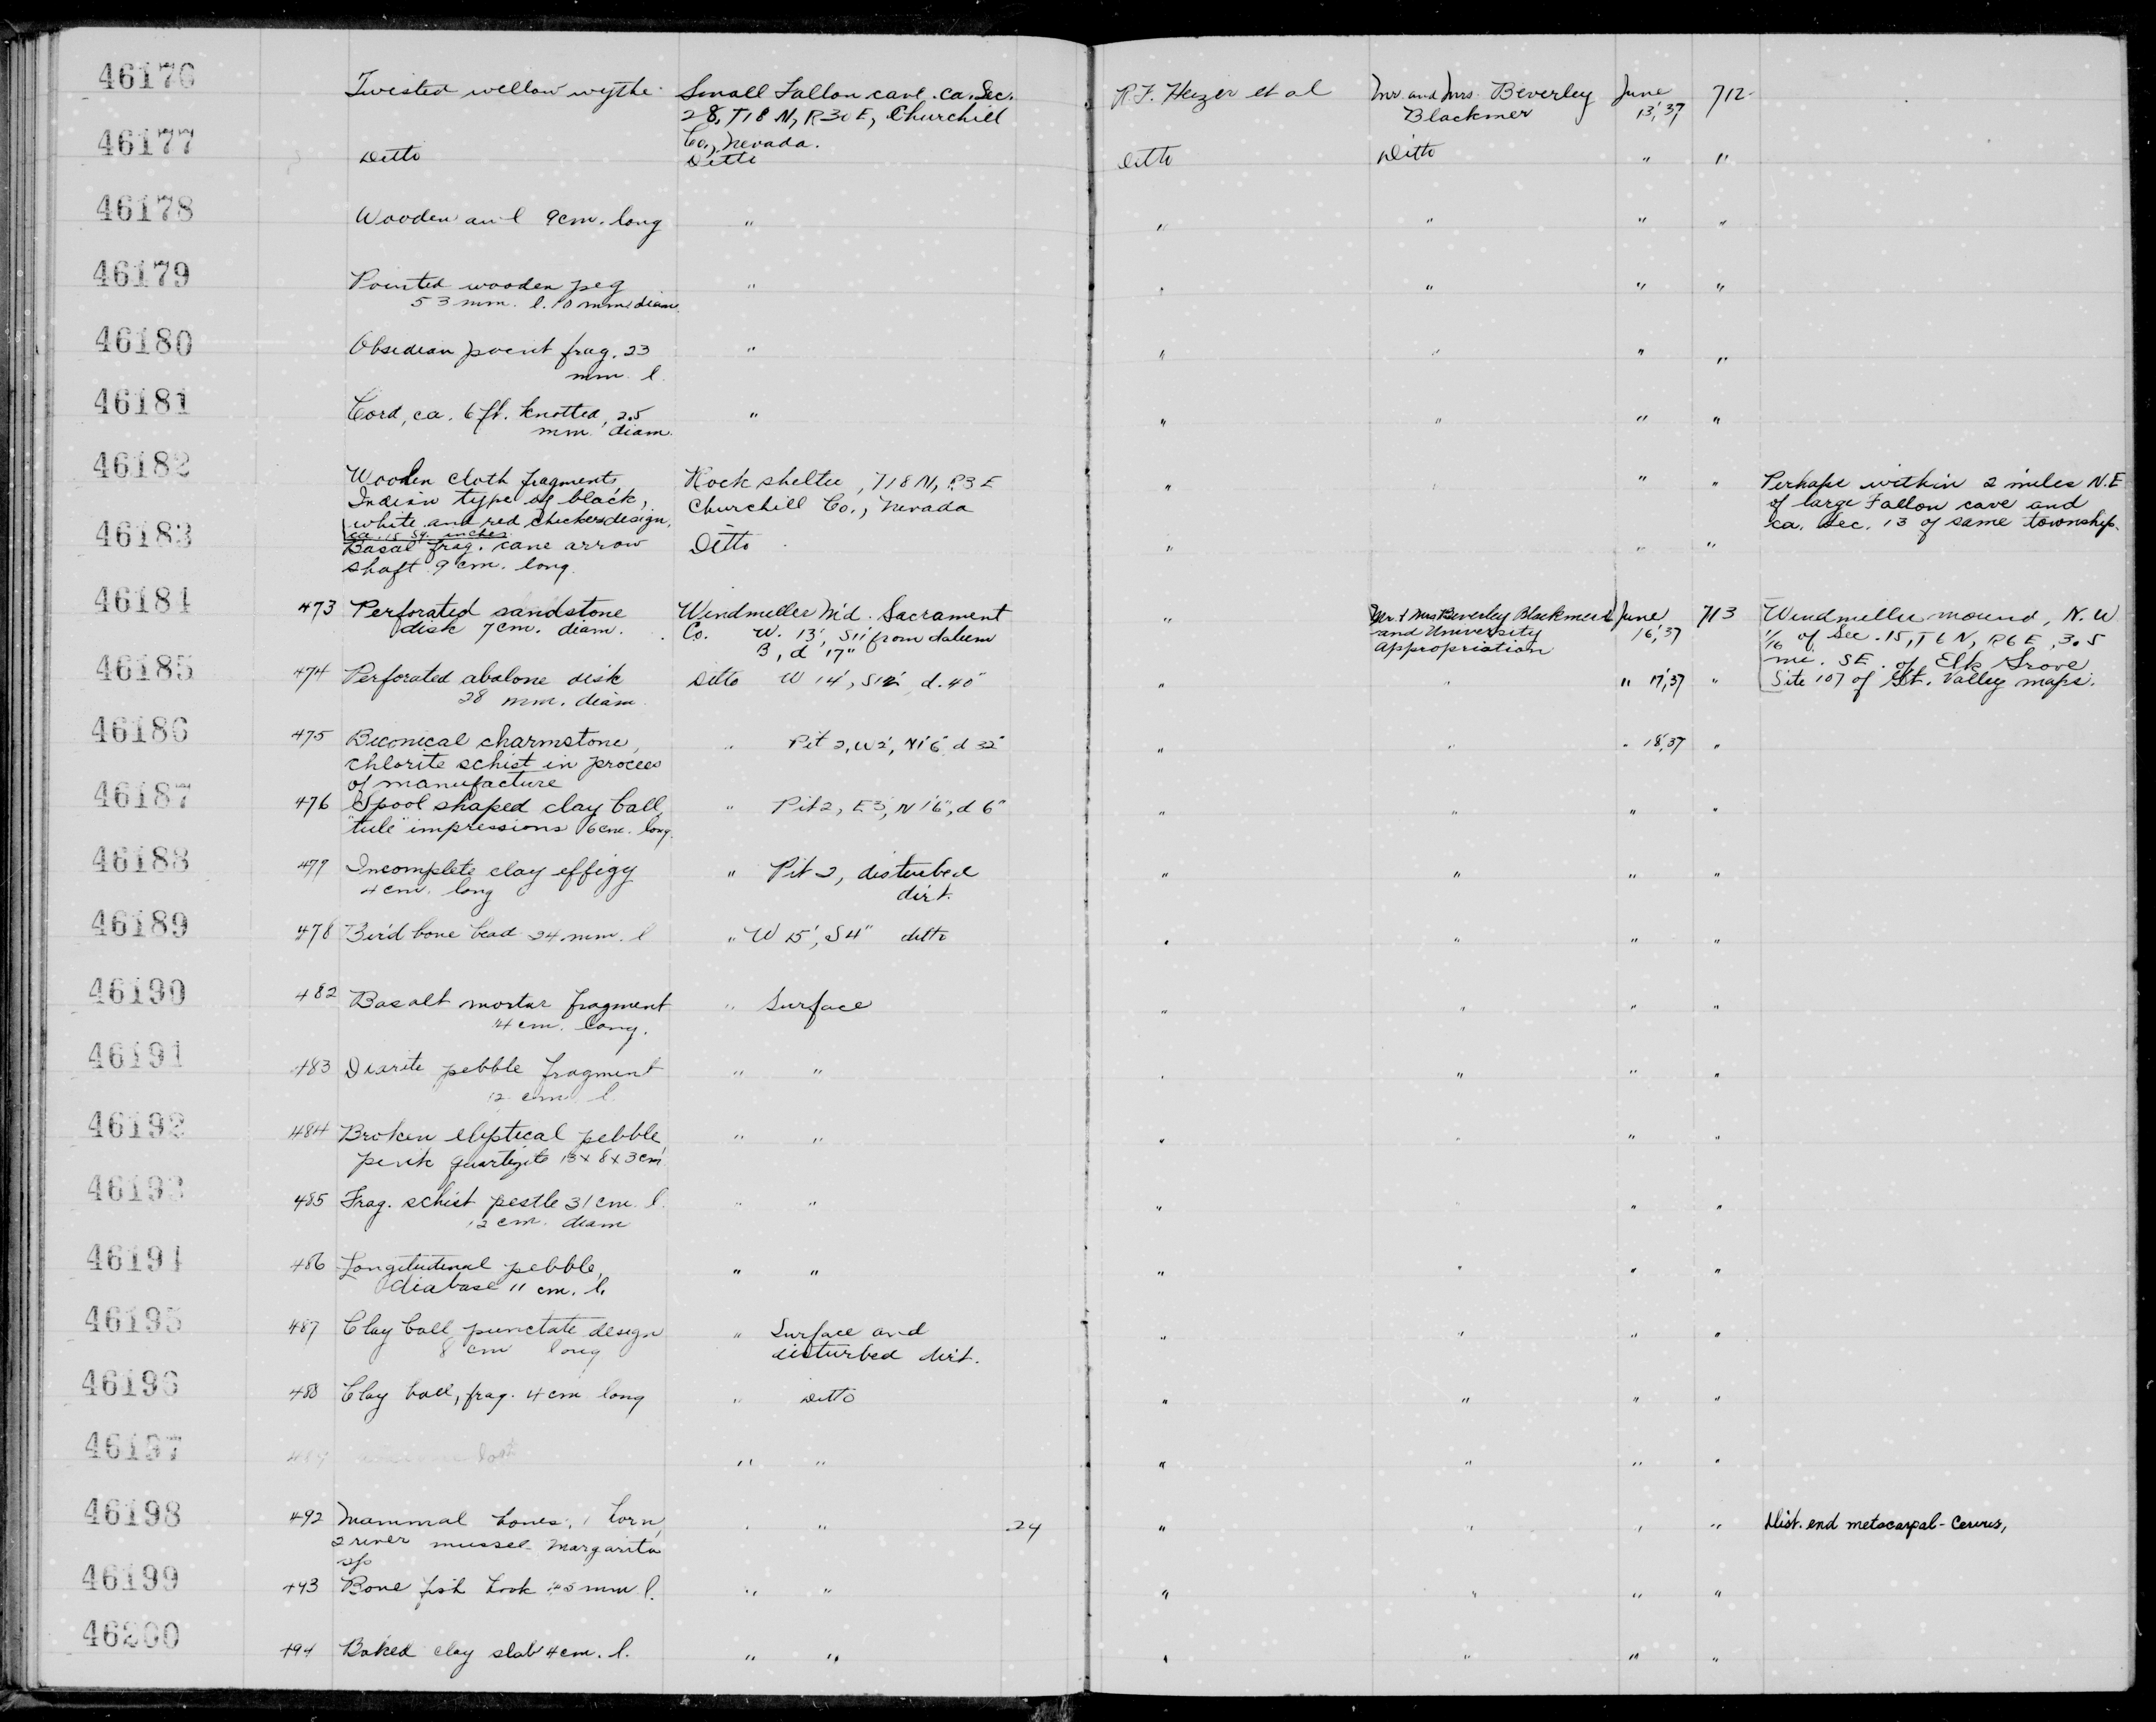 46176 Twisted willow wythe. Small Fallon cave. ca. Sec. R.F. Heizer et al Mr. and Mrs. Beverley June 712
28, T18N, R30E, Churchill Blackmer 13,'37
Co., Nevada.
46177 Ditto Ditto Ditto Ditto " "
46178 Wooden awl 9cm. long " " " " "
46179 Pointed wooden peg " " " " "
53 mm. l. 10 mm. diam.
46180 Obsidian point frag. 23 " " " " "
mm. l.
46181 Cord, ca. 6 ft. knotted, 2.5 " " " " "
mm. diam.
46182 Woolen cloth fragments, Rock shelter, T18N, R3E " " " " Perhaps within 2 miles N.E
Indian type of black, Churchill Co., Nevada of large Fallon cave and
white and red checker design, ca. Sec. 13 of same township.
ca. 15 sq. inches
46183 Basal frag. cane arrow Ditto " " "
shaft 9 cm. long.
46184 473 Perforated sandstone Windmiller M'd. Sacrament " Mr. & Mrs Beverley Blackmer June 713 Windmiller mound, N.W
disk 7cm. diam. Co. W. 13', S11' from datum and University 16,'37 1/16 of Sec. 15, T6N, R6E, 3.5
B, d 17" Appropriation mi. SE. of Elk Grove
46185 474 Perforated abalone disk Ditto W 14', S12' d. 40" " " " 17,'37 " Site 107 of Gt. Valley maps.
28 mm. diam.
46186 475 Biconical charmstone, " Pit 2, W2', N1'6" d 32" " " " 18,'37 "
chlorite schist in process
of manufacture
46187 476 Spool shaped clay ball, " Pit 2, E3', N1'6", d 6" " " " "
"tule" impressions 6cm. long.
46188 477 Incomplete clay effigy " Pit 2, disturbed " " " "
4 cm. long dirt.
46189 478 Bird bone bead 24 mm. l " W 15', S4" ditto " " " "
46190 482 Basalt mortar fragment " Surface " " " "
14 cm. long.
46191 483 Diorite pebble fragment " " " " " "
12 cm l.
46192 484 Broken eliptical pebble, " " " " " "
pink quartzite 13x8x3cm
46193 485 Frag. schist pestle 31 cm. l. " " " " " "
12 cm. diam
46194 486 Longitudinal pebble, " " " " " "
diabase 11 cm. l.
46195 487 Clay ball, punctate design " Surface and " " " "
8 cm long disturbed dirt.
46196 488 Clay ball, frag. 4cm long " Ditto " " " "
46197 " " " " " "
46198 492 Mammal bones, 1 horn, " " 24 " " " " Dist. end metacarpal - Cervus,
2 river mussel Margarita
sp
46199 493 Bone fish hook 45 mm l. " " " " " "
46200 494 Baked clay slab 4cm. l. " " " " " "